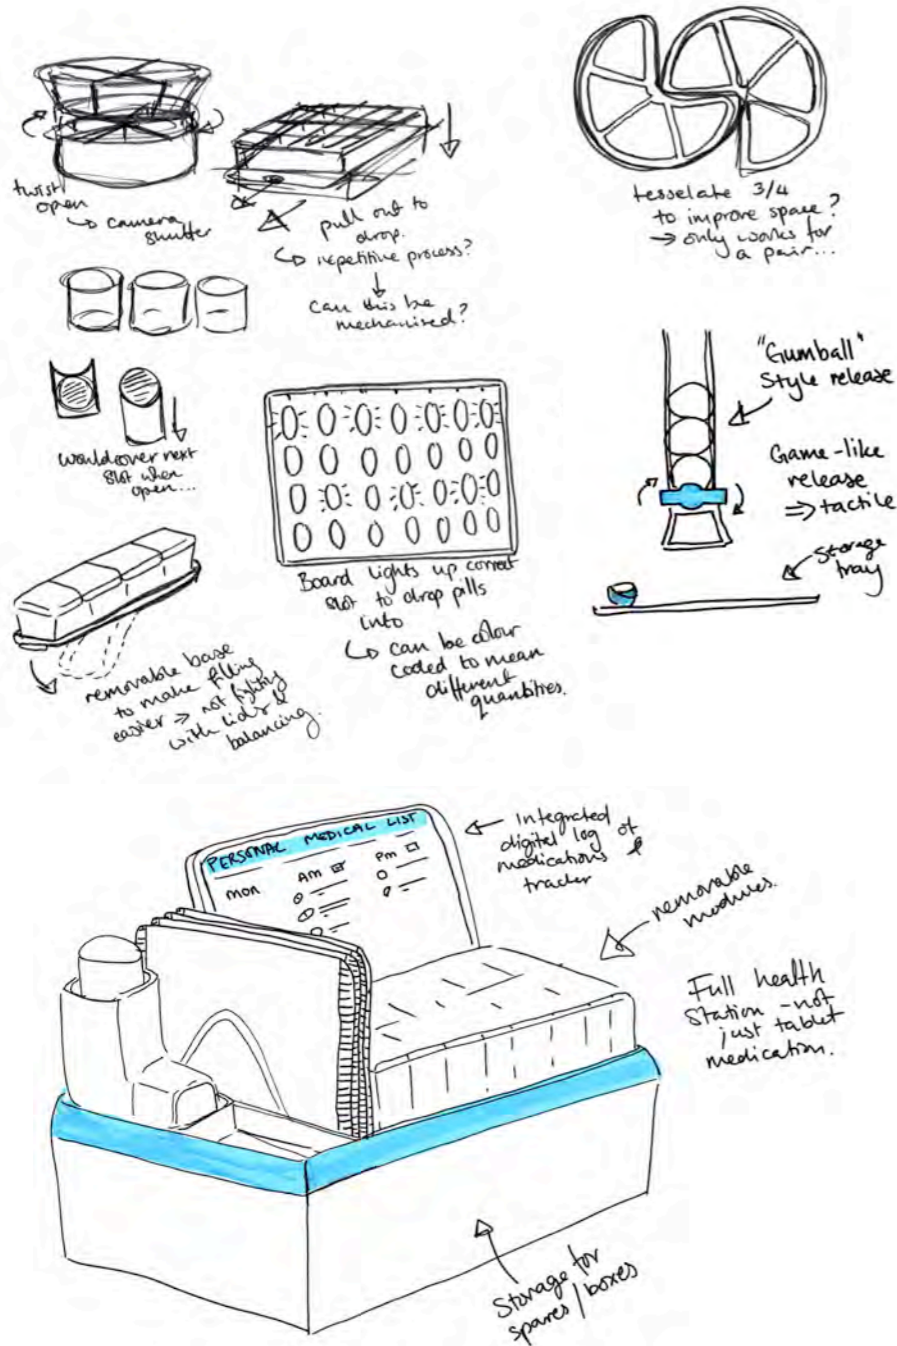 twist
open
↳ camera
shutter
pull out to
drop.
↳ repetitive process?
↓
Can this be
mechanised?
tesselate 3/4
to improve space?
→ only works for
a pair...
would cover next
slot when
open...
"Gumball"
Style release
Game-like
release
⇒ tactile
Storage
tray
Board lights up correct
slot to drop pills
into
↳ can be colour
coded to mean
different
quantities.
removable base
to make filling
easier → not fighting
with lids &
balancing.
PERSONAL MEDICAL LIST
mon AM Pm
integrated
digital log of
medications &
tracker
removable
modules.
Full health
Station - not
just tablet
medication.
Storage for
spares/boxes